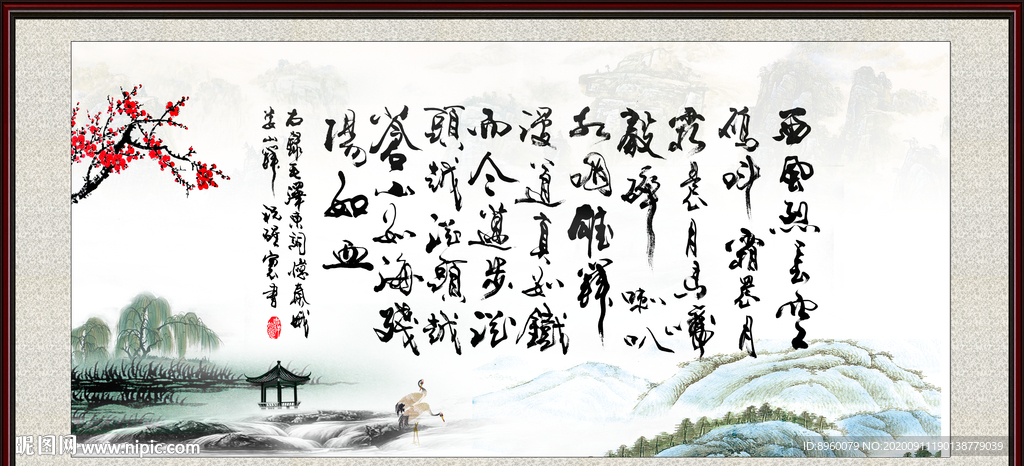 西風烈長空
雁叫霜晨月
霜晨月馬蹄
聲碎喇叭
聲咽雄關
漫道真如鐵
而今邁步從
頭越從頭越
蒼山如海殘
陽如血
右錄毛澤東詞憶秦娥
婁山關 書
昵图网 www.nipic.com
ID:8960079 NO:20200911190138779039